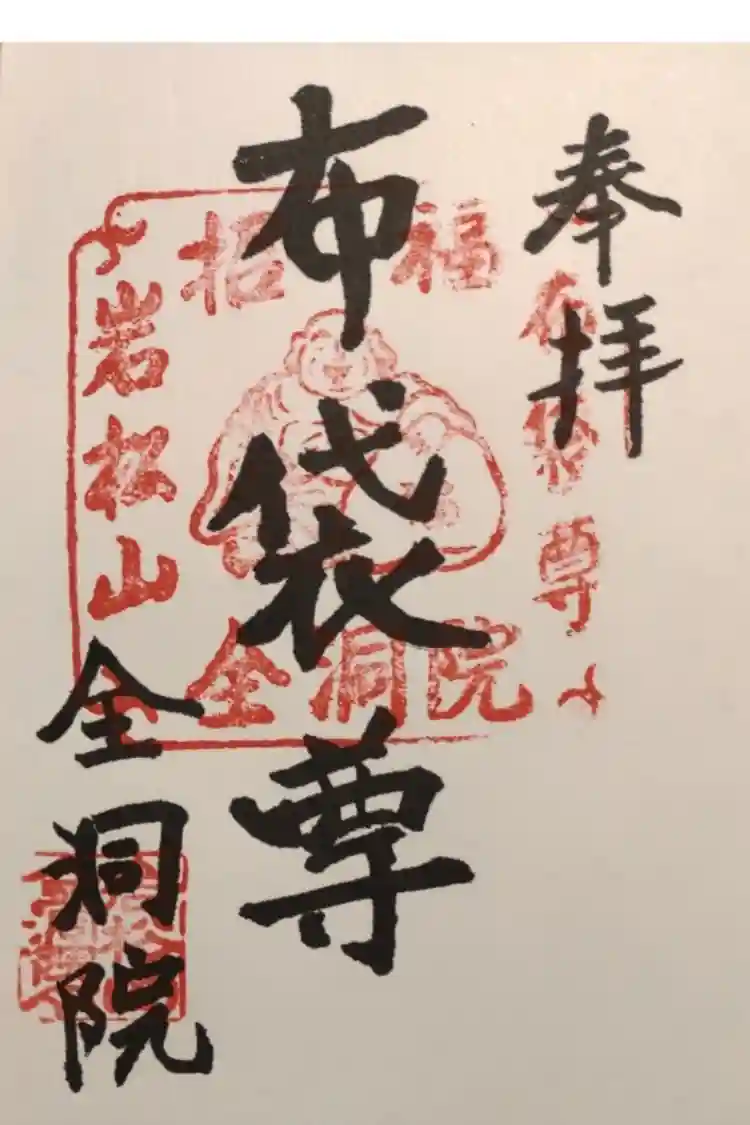 奉拝
布袋尊
全洞院
招福
布袋尊
岩松山
全洞院